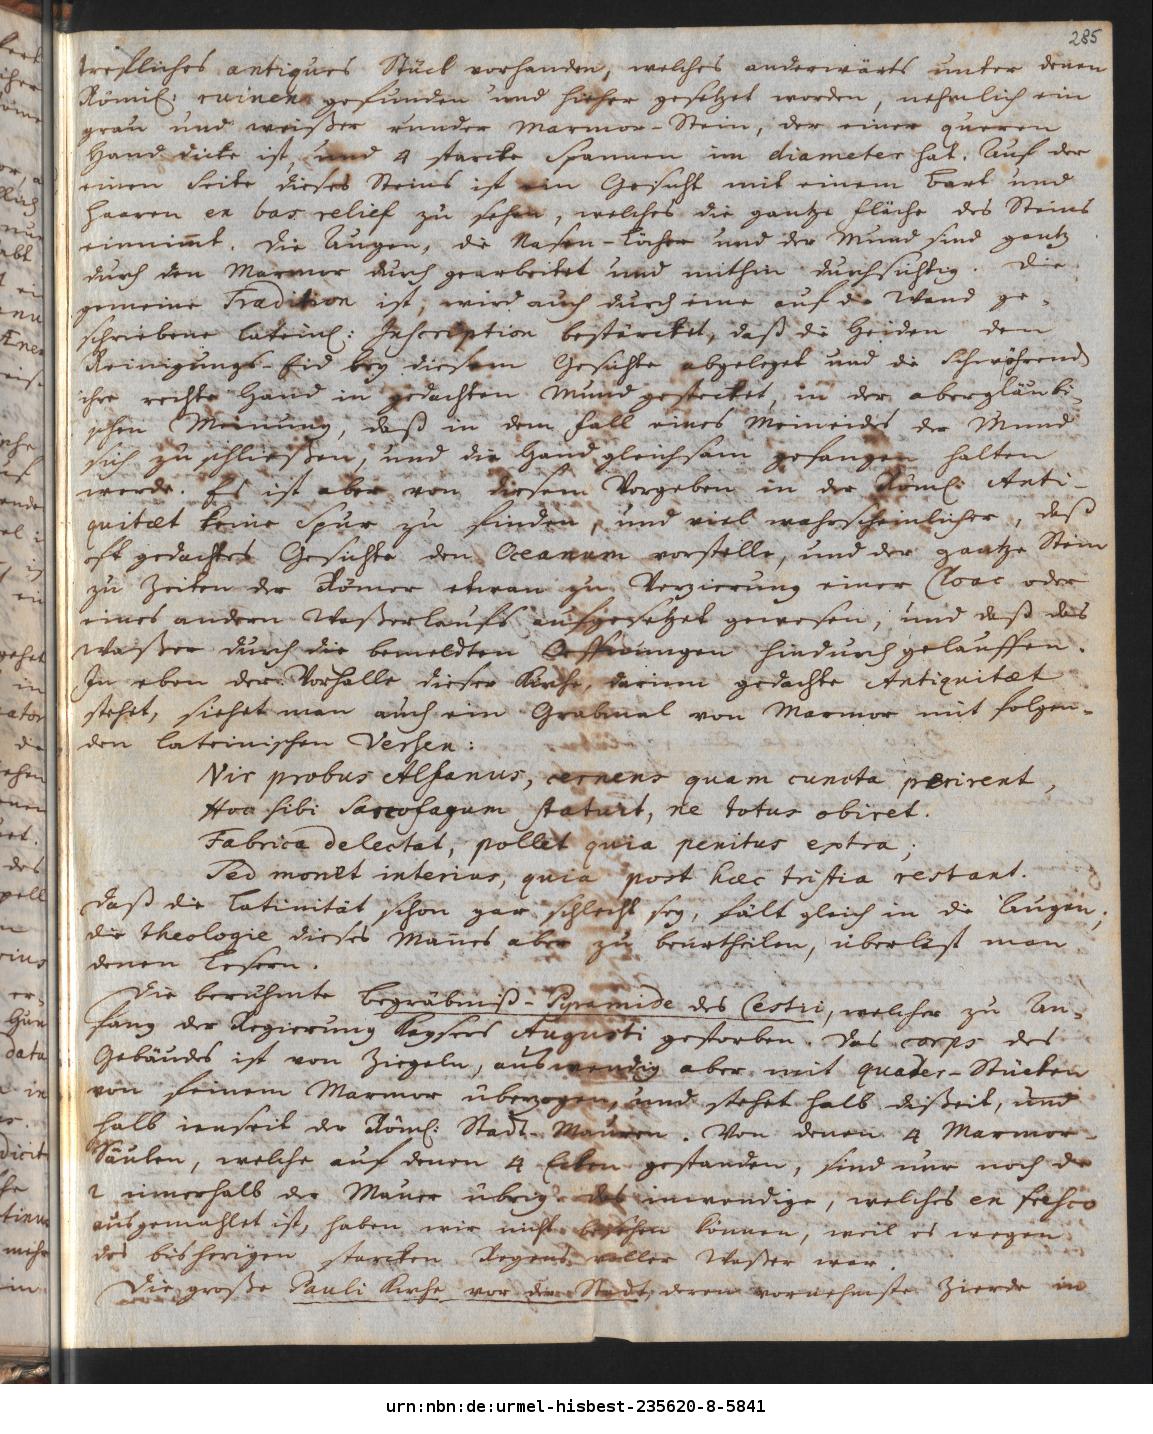 285
trefliches antiques Stück vorhanden, welches anderwärts unter denen
Römis: ruinen gefunden und hieher gesetzet worden, nehmlich ein
grau und weißer runder Marmor-Stein, der einer queren
Hand dicke ist, und 4 starcke Spannen im diameter hat. Auf der
einen Seite dieses Steins ist ein Gesicht mit einem Bart und
Haaren en bas relief zu sehen, welches die gantze Fläche des Steins
einnimt. Die Augen, die Nasen-Löcher und der Mund sind gantz
durch den Marmor durch gearbeitet und mithin durchsichtig. Die
gemeine Tradition ist, wird auch durch eine auf d. Wand ge-
schriebene Lateinis: Inscription bestärcket, daß die Heiden den
Reinigungs-Eid bey diesem Gesichte abgeleget und die Schwöhrende
ihre rechte Hand in gedachten Mund gestecket, in der abergläubi-
schen Meinung, daß in dem Fall eines Meineides der Mund
sich zu schließen, und die Hand gleichsam gefangen halten
werde. Es ist aber von diesem Vorgeben in der Röm: Anti-
quitæt keine Spur zu finden, und viel wahrscheinlicher, daß
oft gedachtes Gesichte den Oceanum vorstelle, und der gantze Stein
zu Zeiten der Römer etwan zu Verzierung einer Cloac oder
eines andern Waßerlaufs aufgesetzet gewesen, und daß das
Waßer durch die bemeldten Oeffnungen hindurch gelauffen.
In eben der Vorhalle dieser Kirche, darinn gedachte Antiquitæt
stehet, siehet man auch ein Grabmal von Marmor mit folgen-
den lateinischen Versen:
Vir probus Alfanus, cernens quam cuncta perirent,
Hoc sibi Sarcofagum statuit, ne totus obiret.
Fabrica delectat, pollet quia penitus extra;
Sed monet interius, quia post hæc tristia restant.
Daß die Latinität schon gar schlecht sey, fält gleich in die Augen;
die theologie dieses Mañes aber zu beurtheilen, überläst man
denen Lesern.
Die berühmte Begräbniß-Pyramide des Cestii, welcher zu An-
fang der Regierung Kaysers Augusti gestorben. Das corps des
Gebäudes ist von Ziegeln, auswendig aber mit quader-Stücken
von feinem Marmor überzogen, und stehet halb dißeit, und
halb ienseit der Röm: Stadt-Mauren. Von denen 4 Marmor-
Säulen, welche auf denen 4 Ecken gestanden, sind nur noch die
2 innerhalb der Mauer übrig. das inwendige, welches en fresco
ausgemahlet ist, haben wir nicht besehen können, weil es wegen
des bisherigen starcken Regens voller Waßer war.
Die große Pauli Kirche vor der Stadt, deren vornehmste Zierde in
urn:nbn:de:urmel-hisbest-235620-8-5841